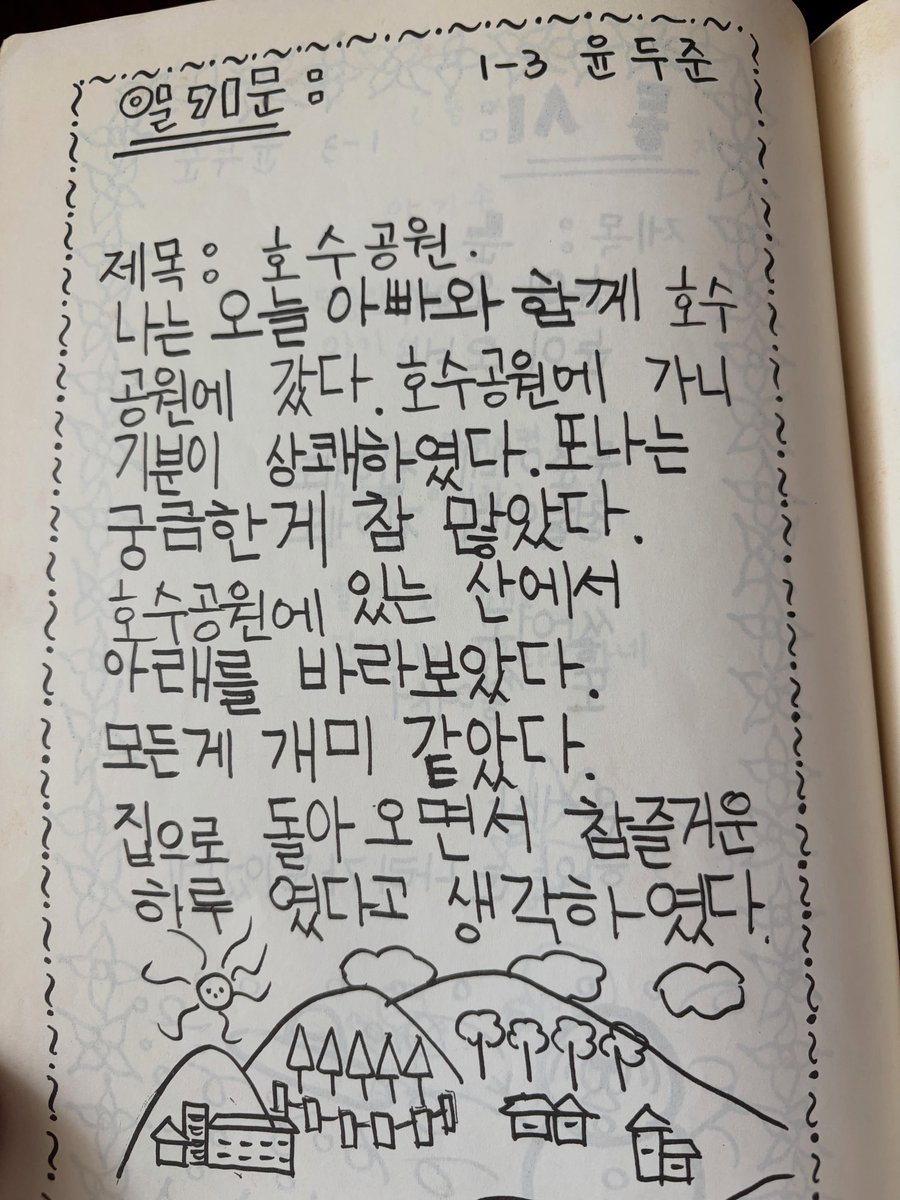 1-3 윤두준
일기문:
제목: 호수공원.
나는 오늘 아빠와 함께 호수
공원에 갔다. 호수공원에 가니
기분이 상쾌하였다. 또나는
궁금한게 참 많았다.
호수공원에 있는 산에서
아래를 바라보았다.
모든게 개미 같았다.
집으로 돌아 오면서 참즐거운
하루 였다고 생각하였다.